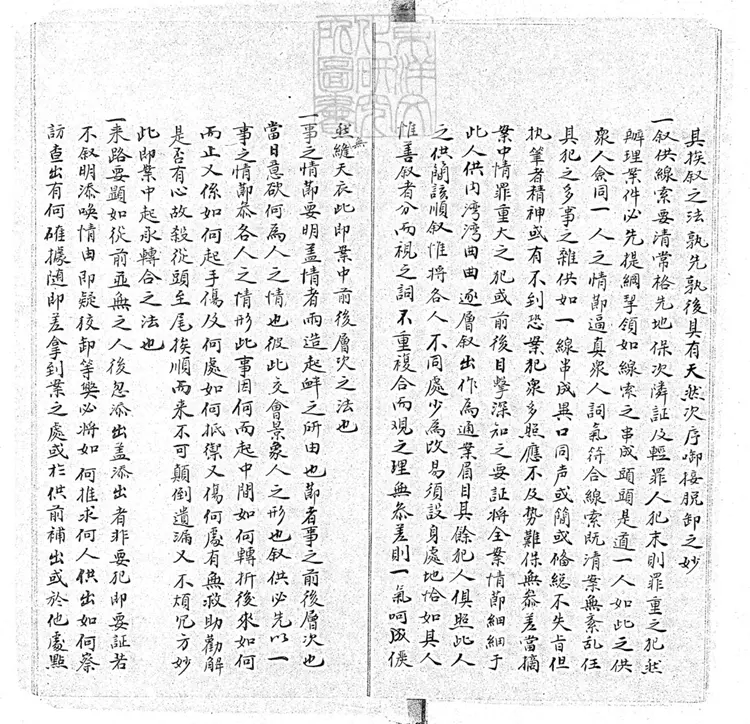 其挨叙之法孰先孰後具有天然次序啣接脫卸之妙
一叙供線索要清常格先地保次隣証及輕罪人犯末則罪重之犯然
辦理案件必先提綱挈領如線索之串成頭頭是道一人如此之供
衆人僉同一人之情節逼真衆人詞氣符合線索既清案無紊乱任
其犯之多事之雜供如一線串成異口同声或簡或俻總不失旨但
执筆者精神或有不到恐案犯衆多照應不及势難保無叅差當摘
案中情罪重大之犯或前後目擊深知之要証將全案情節細細于
此人供内湾湾曲曲逐層叙出作為通案眉目其餘犯人俱照此人
之供簡該順叙惟將各人不同處少為改易須設身處地恰如其人
惟善叙者分而視之詞不重複合而观之理無叅差則一氣呵成儼
然無縫天衣此即案中前後層次之法也
一事之情節要明盖情者而造起衅之所由也節者事之前後層次也
當日意欲何為人之情也彼此交會景象人之形也叙供必先以一
事之情節叅各人之情形此事因何而起中間如何轉折後來如何
而止又係如何起手傷及何處如何抵禦又傷何處有無救助勸解
是否有心故殺從頭至尾挨順而来不可顛倒遺漏又不煩冗方妙
此即案中起承轉合之法也
一来路要顯如從前並無之人後忽添出盖添出者非要犯即要証若
不叙明添唤情由即疑狡卸等獘必將如何推求何人供出如何察
訪查出有何確據随即差拿到案之處或於供前補出或於他處點
東洋文化研究所圖書